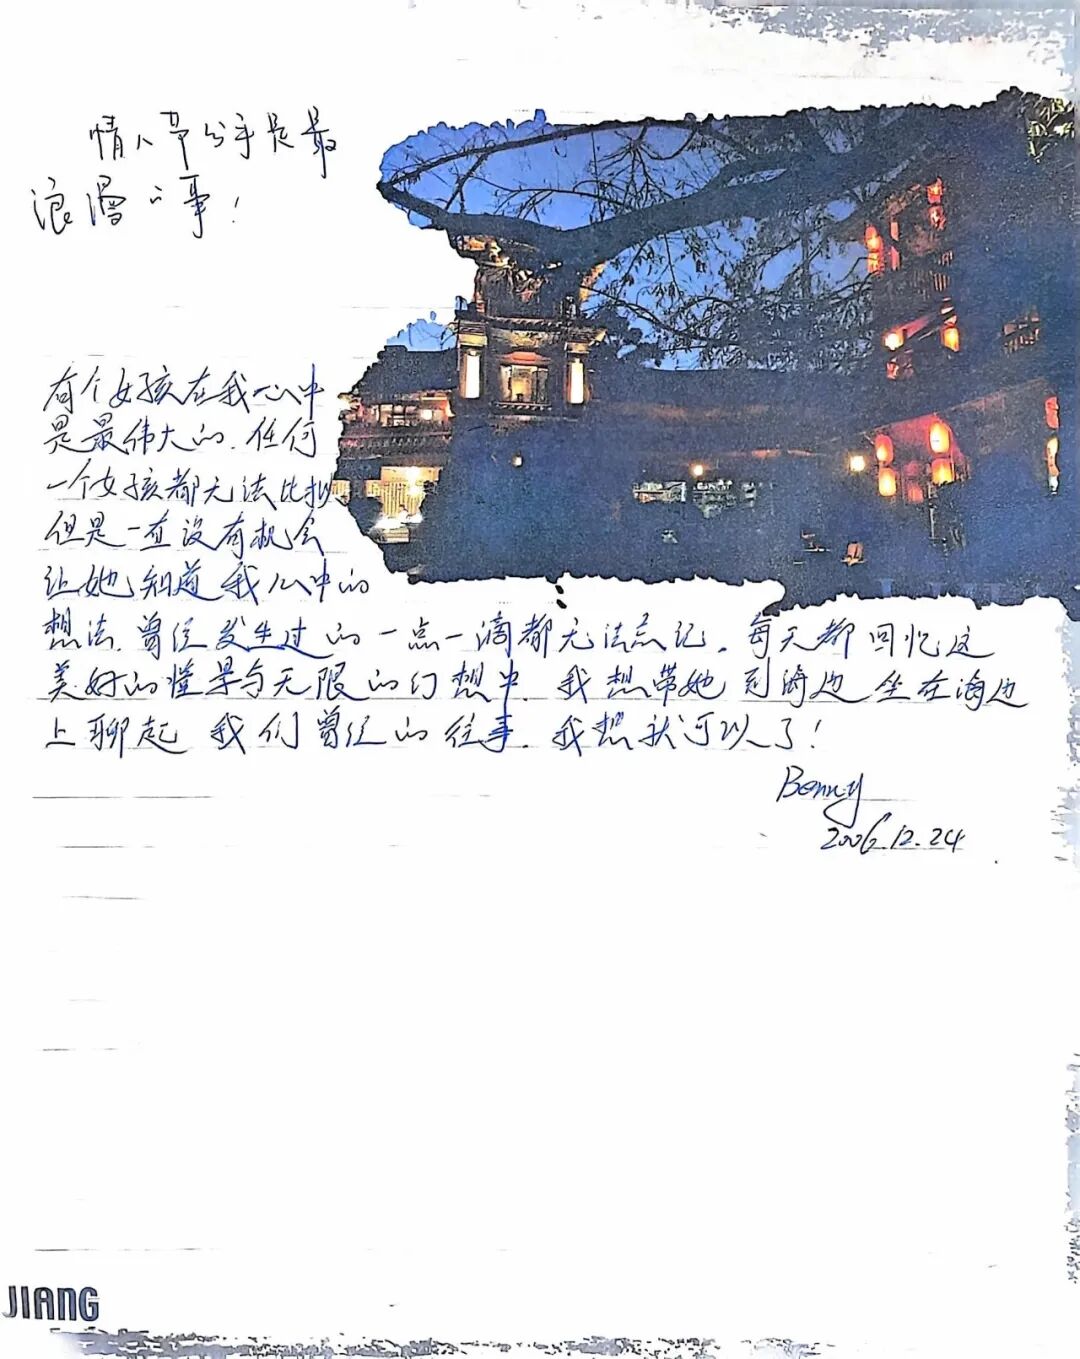 情人节分手是最
浪漫的事!
有个女孩在我心中
是最伟大的.任何
一个女孩都无法比拟.
但是一直没有机会
让她知道我心中的
想法.曾经发生过的一点一滴都无法忘记.每天都回忆这
美好的憧景与无限的幻想中.我想带她到海边坐在海边
上聊起我们曾经的往事.我想就可以了!
Benny
2006.12.24
JIANG